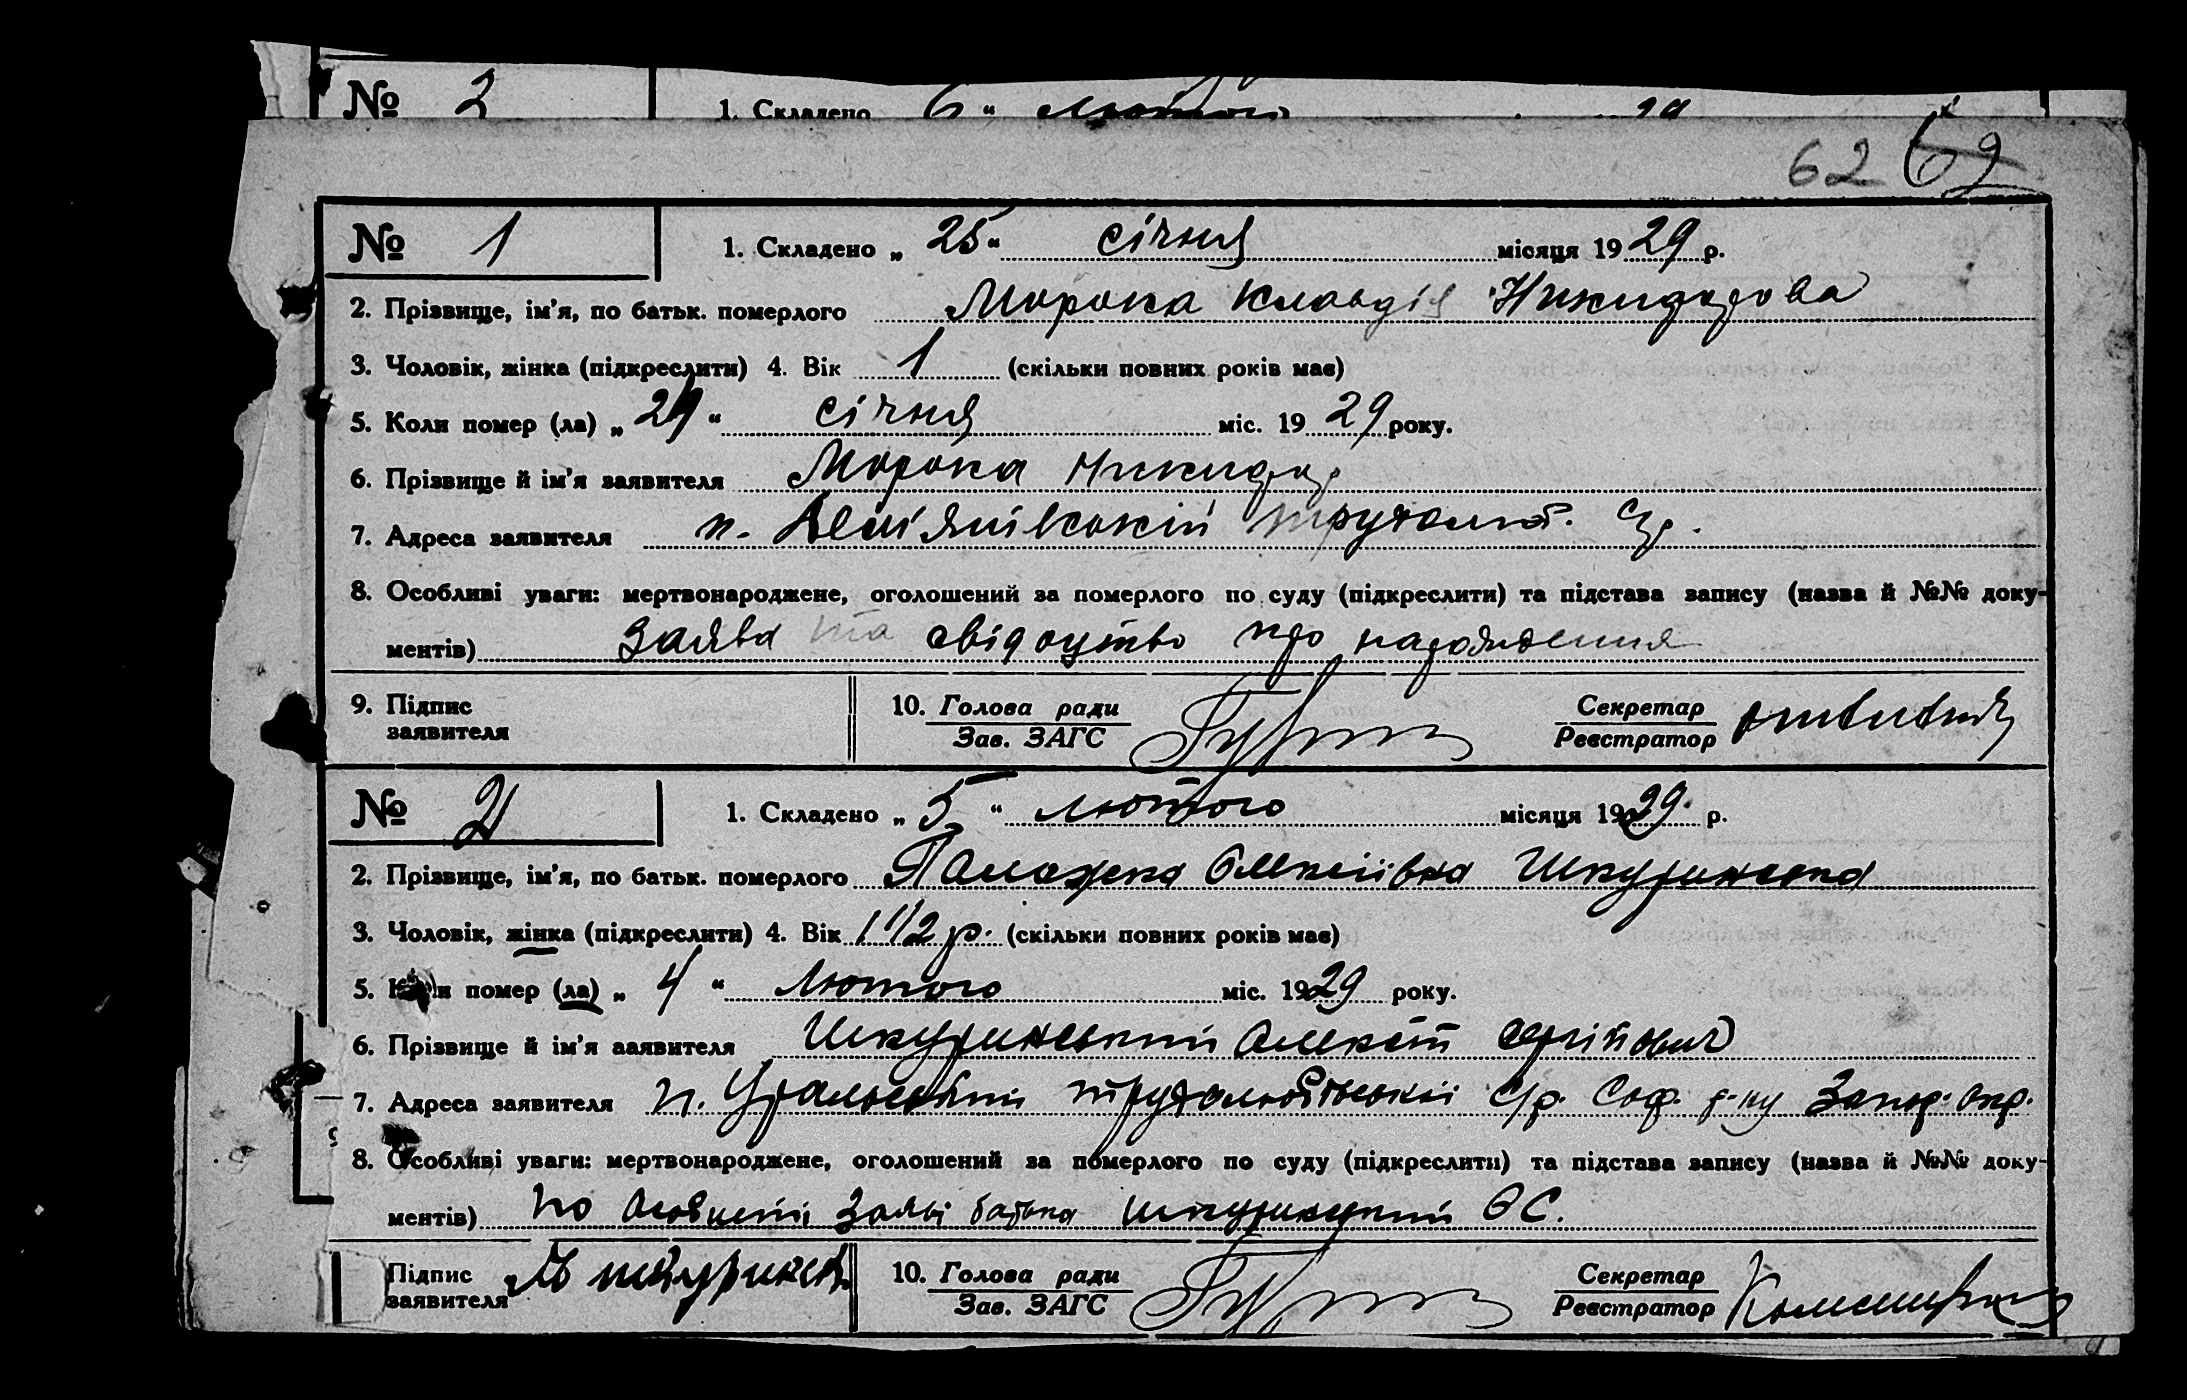 № 2 1. Складено 6 " лютого 29
62 62
№ 1 1. Складено „ 25 “ січня місяця 19 29 р.
2. Прізвище, ім'я, по батьк. померлого Морока Клавдія Никидорова
3. Чоловік, жінка (підкреслити) 4. Вік 1 (скільки повних років має)
5. Коли помер (ла) „ 24 “ січня міс. 19 29 року.
6. Прізвище й ім'я заявителя Морока Никидор
7. Адреса заявителя п.
8. Особливі уваги: мертвонароджене, оголошений за померлого по суду (підкреслити) та підстава запису (назва й №№ доку-
ментів) Заява та свідоцтво про народження
9. Підпис заявителя 10. Голова ради Зав. ЗАГС Секретар Реєстратор
№ 2 1. Складено „ 5 “ лютого місяця 19 29 р.
2. Прізвище, ім'я, по батьк. померлого Палажка Олексіївна
3. Чоловік, жінка (підкреслити) 4. Вік 1 1/2 р. (скільки повних років має)
5. Коли помер (ла) „ 4 “ Лютого міс. 19 29 року.
6. Прізвище й ім'я заявителя
7. Адреса заявителя п. с/р. Соф. р-ну Запор. окр.
8. Особливі уваги: мертвонароджене, оголошений за померлого по суду (підкреслити) та підстава запису (назва й №№ доку-
ментів) по особистій заяві батька О С.
Підпис заявителя 10. Голова ради Зав. ЗАГС Секретар Реєстратор